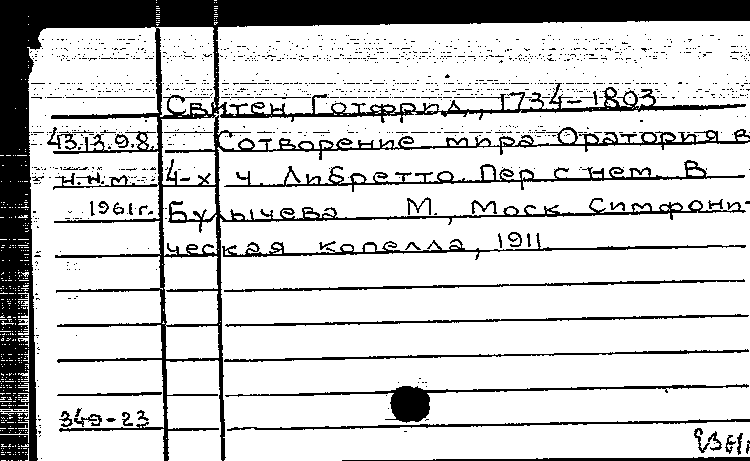 Свитен, Готфрид, 1734-1803
43.13.9.8. Сотворение мира Оратория в
н.н.м. 4-х ч. Либретто. Пер с нем. В
1961г. Булычева М., Моск Симфони-
ческая копелла, 1911.
349-23